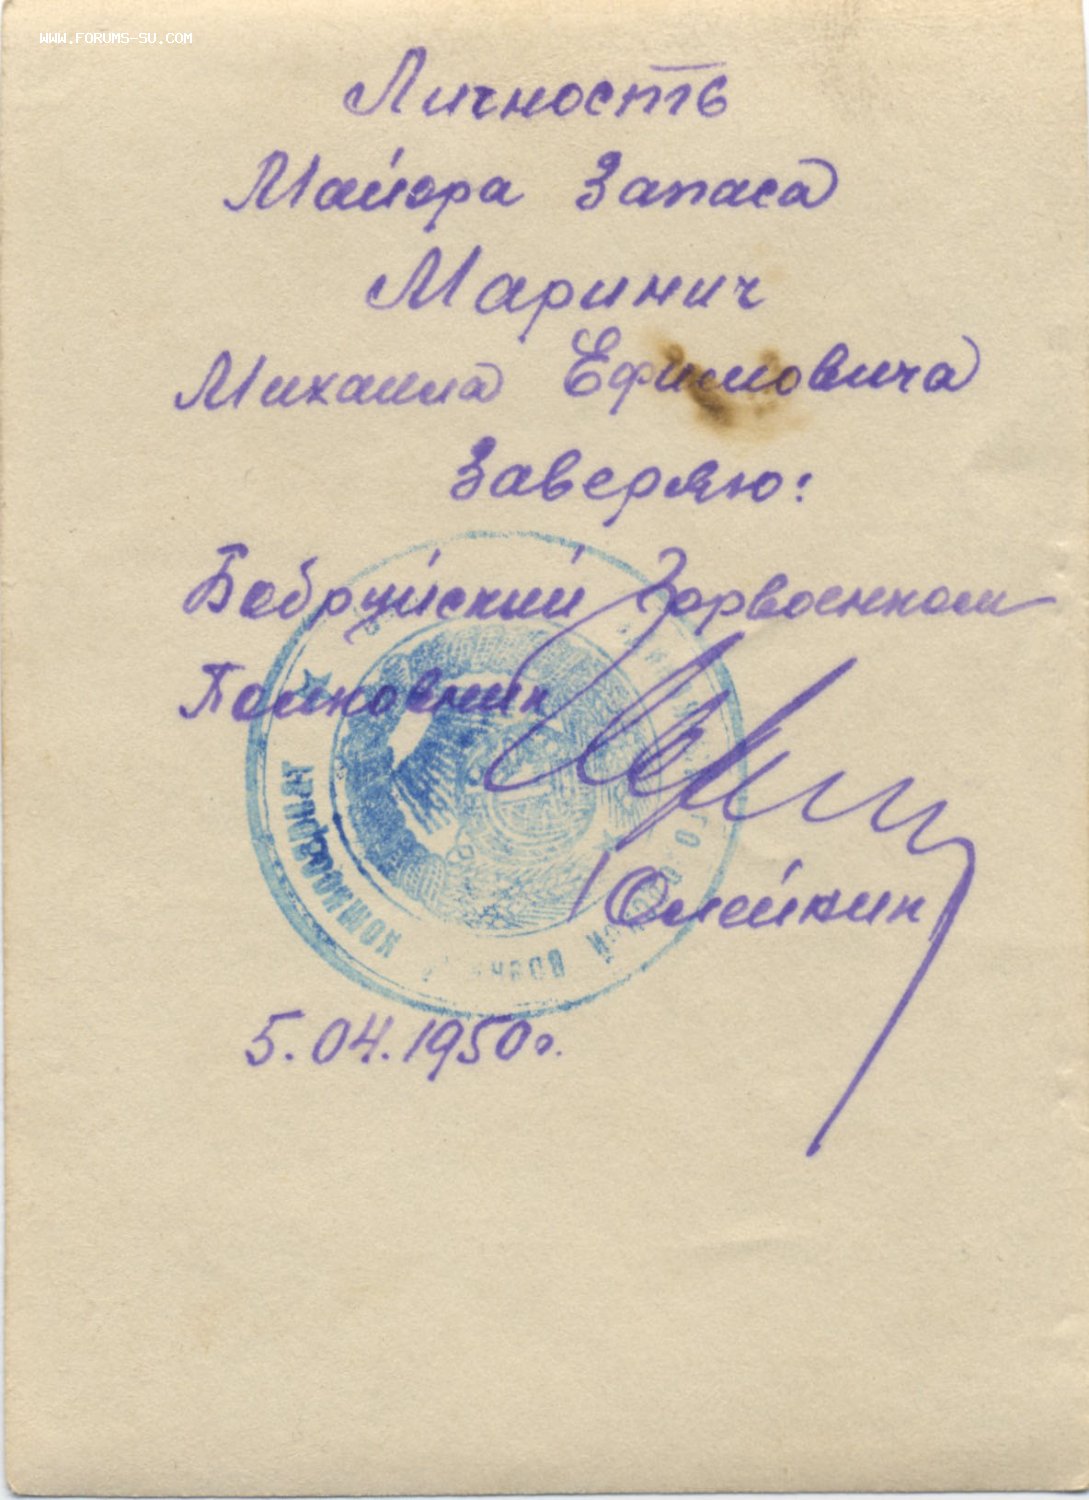 WWW.FORUMS-SU.COM
Личность
Майора Запаса
Маринич
Михаила Ефимовича
Заверяю:
Бобруйский Горвоенком
Полковник
Олейкин
5.04.1950г.